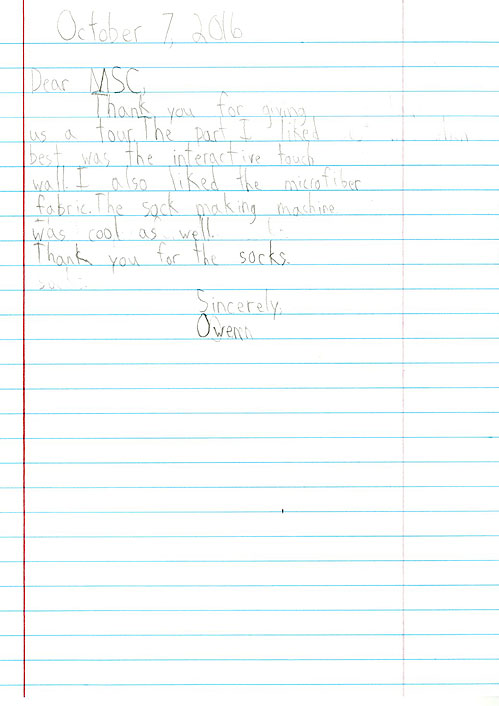 October 7, 2016
Dear MSC,
Thank you for giving
us a tour. The part I liked
best was the interactive touch
wall. I also liked the microfiber
fabric. The sock making machine
was cool as well.
Thank you for the socks.
Sincerely,
Owenn